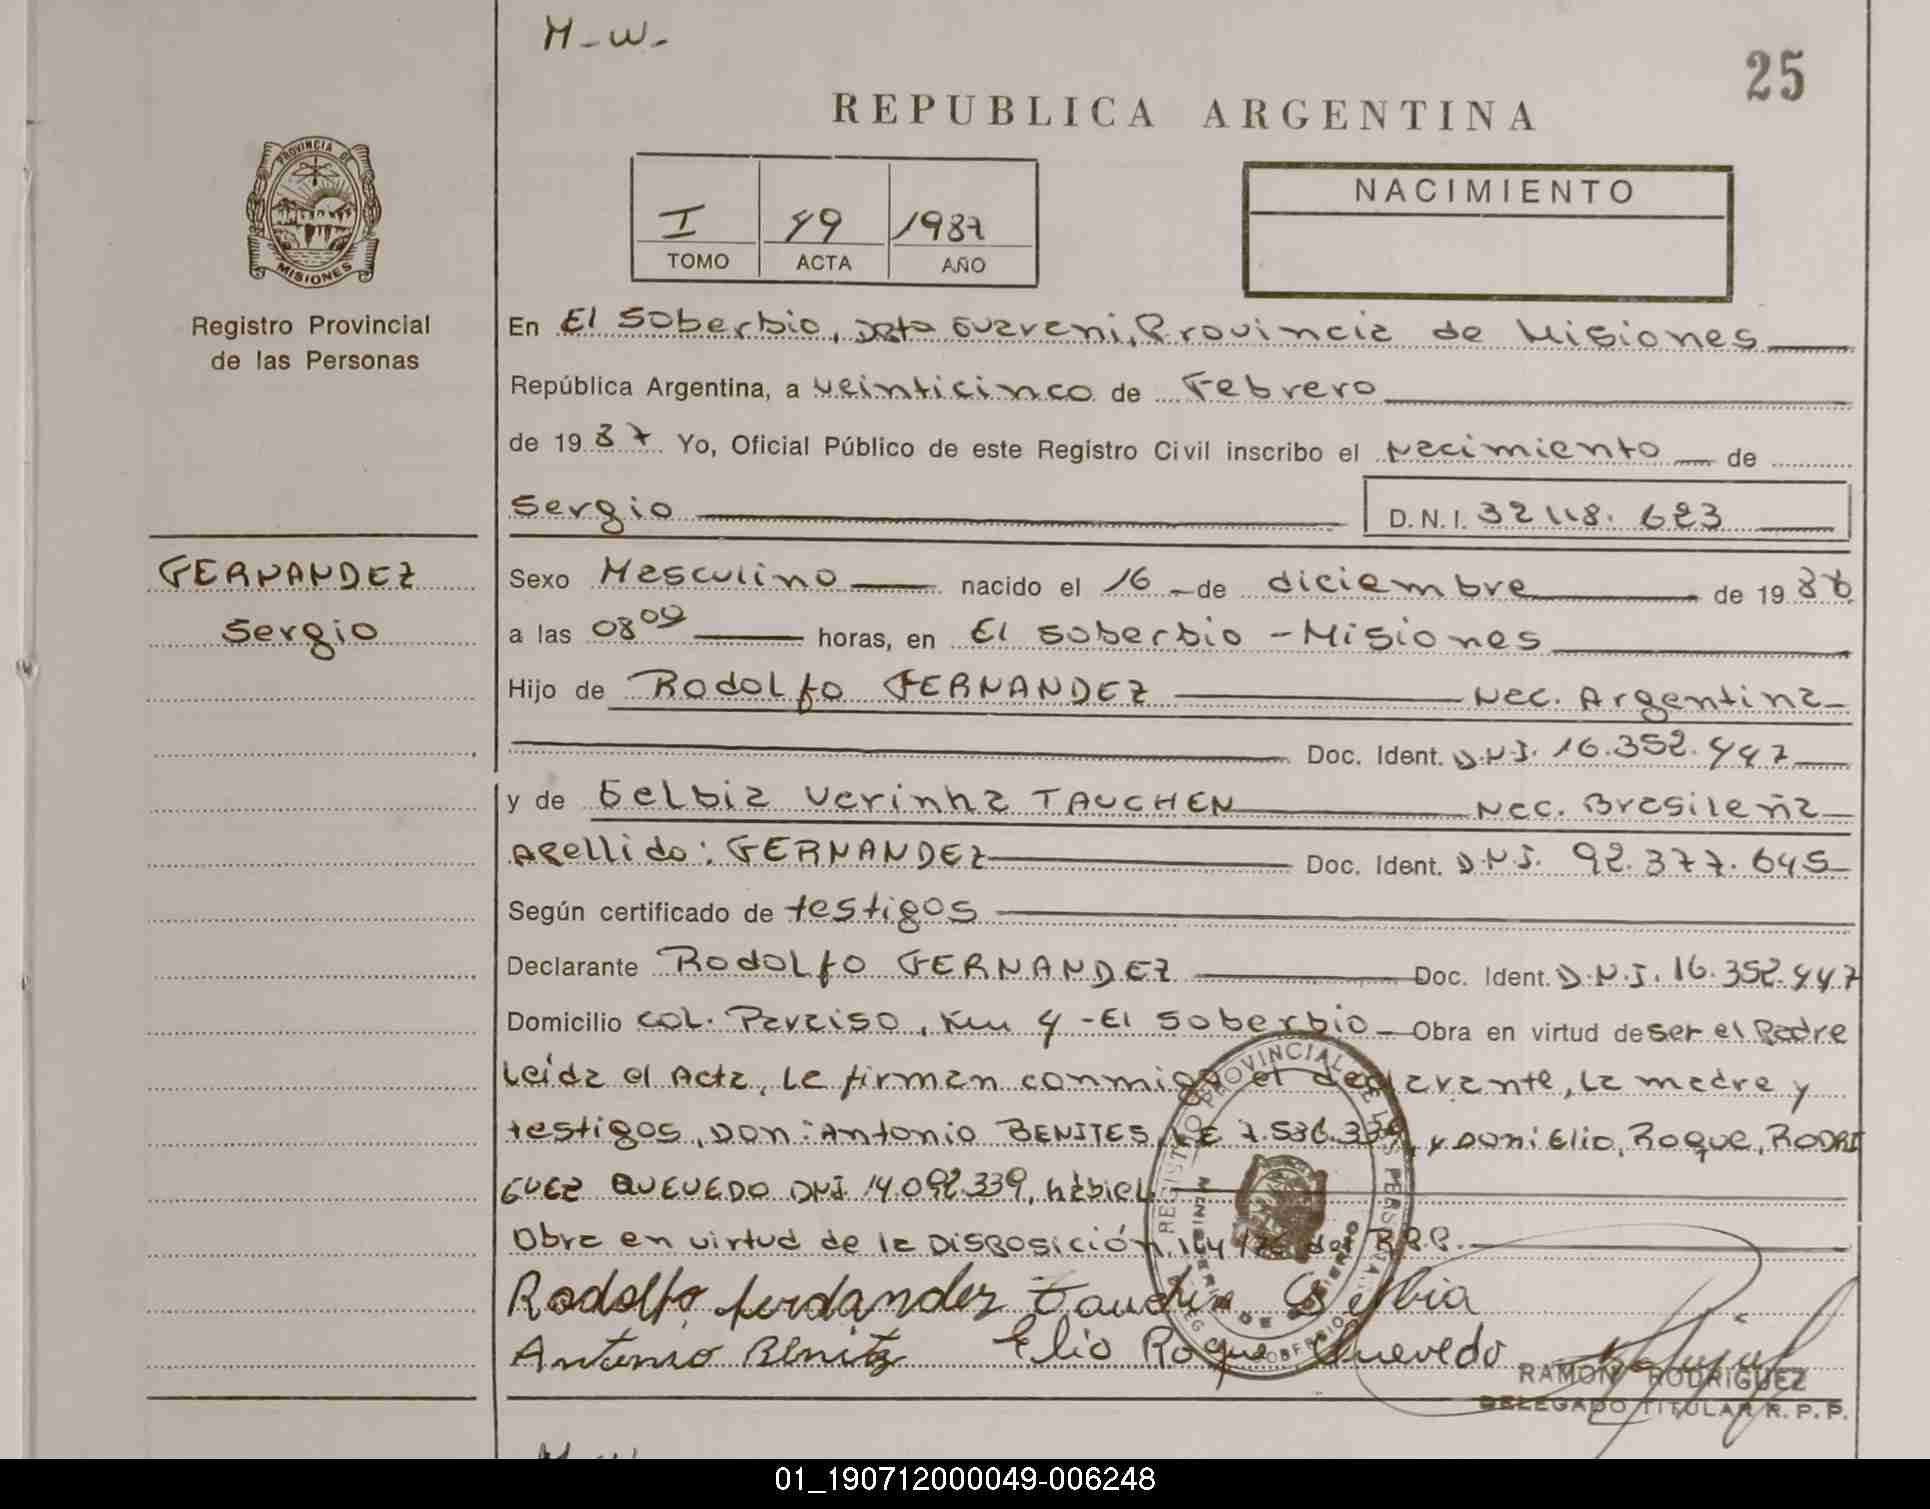 M-W-
25
REPUBLICA ARGENTINA
PROVINCIA DE
MISIONES
Registro Provincial
de las Personas
I 49 1987
TOMO ACTA AÑO
NACIMIENTO
En El Soberbio, Dpto Guarani, Provincia de Misiones
República Argentina, a veinticinco de Febrero
de 1987 Yo, Oficial Público de este Registro Civil inscribo el Nacimiento de
Sergio D.N.I. 32.118.623
FERNANDEZ
Sergio
Sexo Masculino nacido el 16 de diciembre de 1986
a las 08 00 horas, en El Soberbio - Misiones
Hijo de Rodolfo FERNANDEZ Nac. Argentina
Doc. Ident. D.N.I. 16.352.447
y de Gelbia Verinha TAUCHEN Nac. Brasileña
Apellido: FERNANDEZ Doc. Ident. D.N.I. 92.377.645
Según certificado de testigos
Declarante Rodolfo FERNANDEZ Doc. Ident. D.N.I. 16.352.447
Domicilio Col. Paraiso, Km 4 - El Soberbio Obra en virtud de ser el Padre
Leída el Acta, la firman conmigo el declarante, la madre y
testigos, Don: Antonio BENITES, LE 7.536.339, y Don: Elio, Roque, RODRI
GUEZ QUEVEDO DNI 14.092.339, hábiel
Obra en virtud de la Disposición de R.P.P.
Rodolfo Ferdandez Tauchen Gelbia
Antonio Benitz Elio Roque Quevedo
REGISTRO PROVINCIAL DE LAS PERSONAS
MINISTERIO DE GOBIERNO
RAMON RODRIGUEZ
DELEGADO TITULAR R.P.P.
01_190712000049-006248